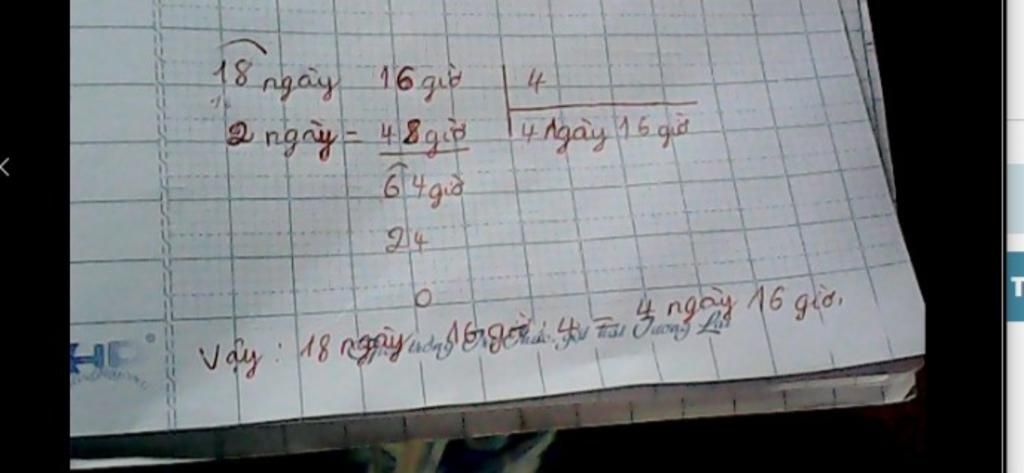 18 ngày 16 giờ 4
2 ngày = 48 giờ 4 ngày 16 giờ
64 giờ
24
0
Vậy : 18 ngày 16 giờ : 4 = 4 ngày 16 giờ.
HP
T